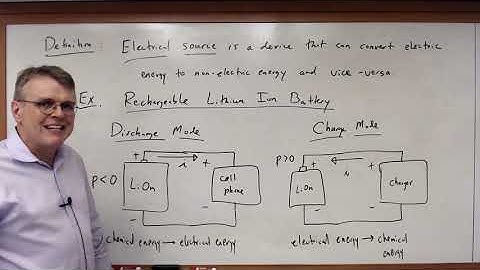 Definition: Electrical source is a device that can convert electric
energy to non-electric energy and vice-versa.
Ex. Rechargeable Lithium Ion Battery
Discharge Mode
Charge Mode
P<0
+
i
+
LiOn
cell phone
-
-
P>0
+
i
+
LiOn
Charger
-
-
chemical energy → electrical energy
electrical energy → chemical energy